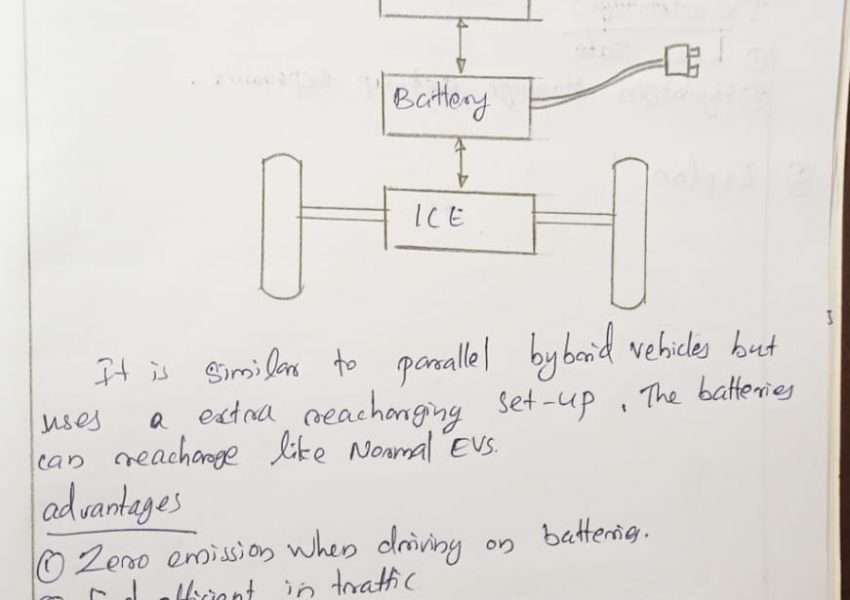 Battery
ICE
It is similar to parallel hybrid vehicles but
uses a extra reacharging set-up. The batteries
can reacharge like Normal EVs.
advantages
① Zero emission when driving on batteries.
in traffic